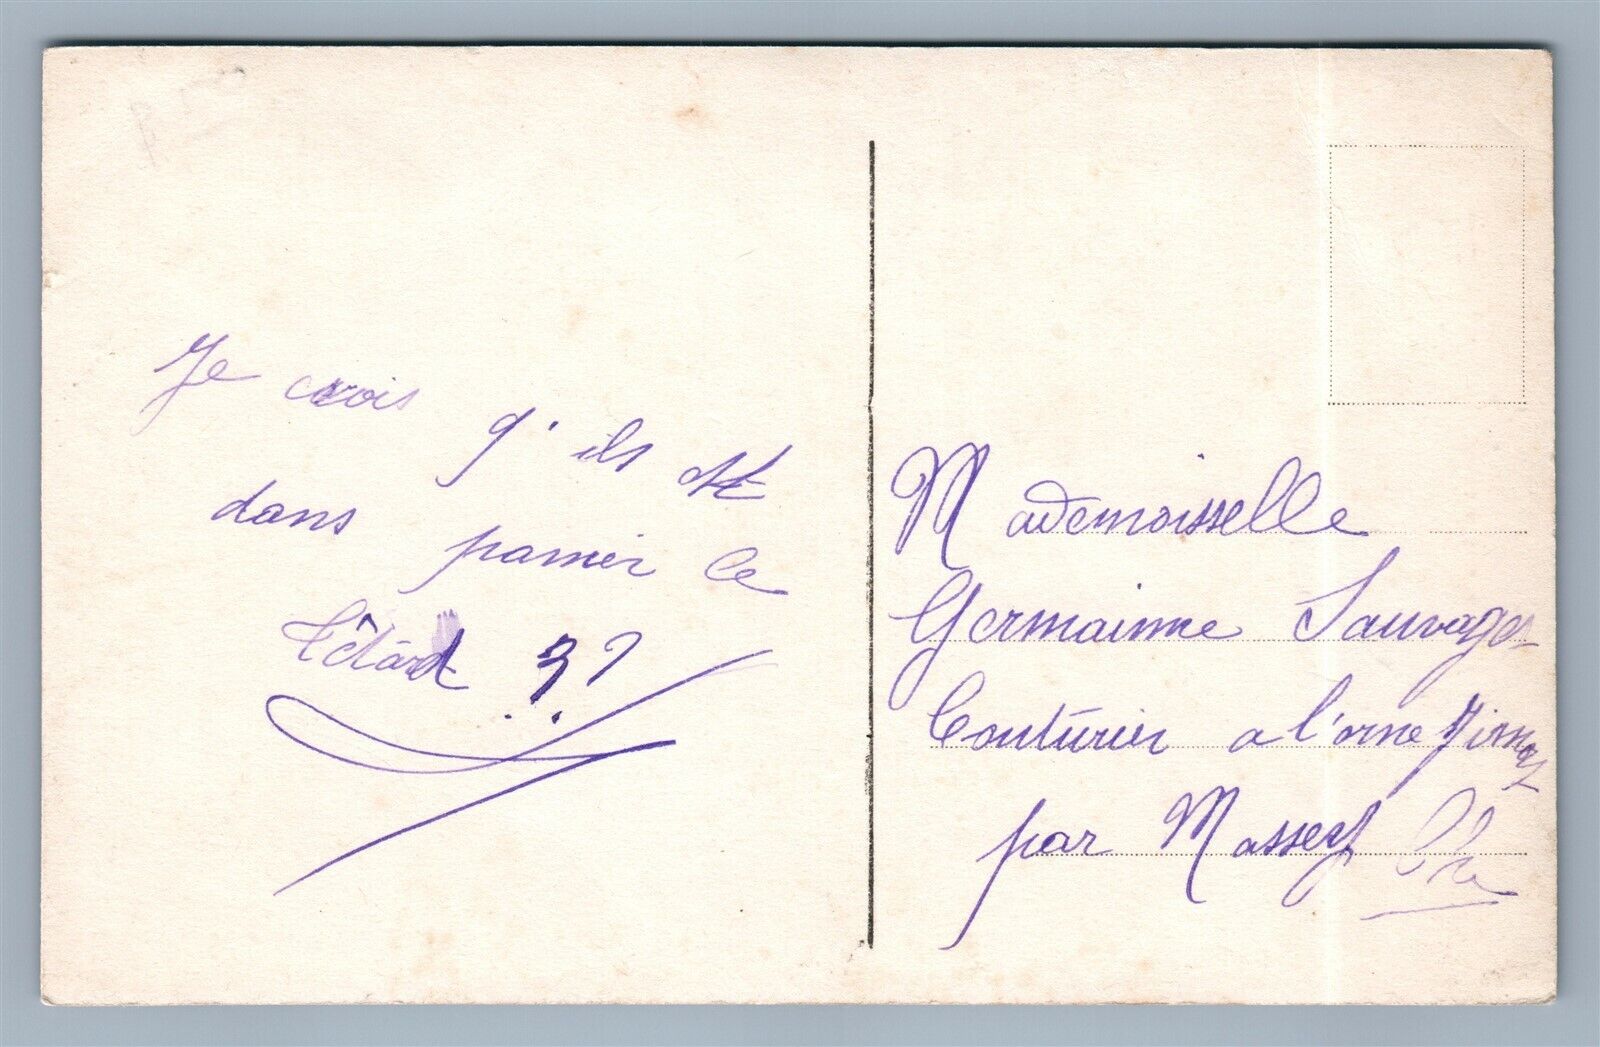 Je crois
q' ils
dans panier le
Têtard ??
Mademoisselle
Germainne Sauvage
Couturier a l'orme
par Massey